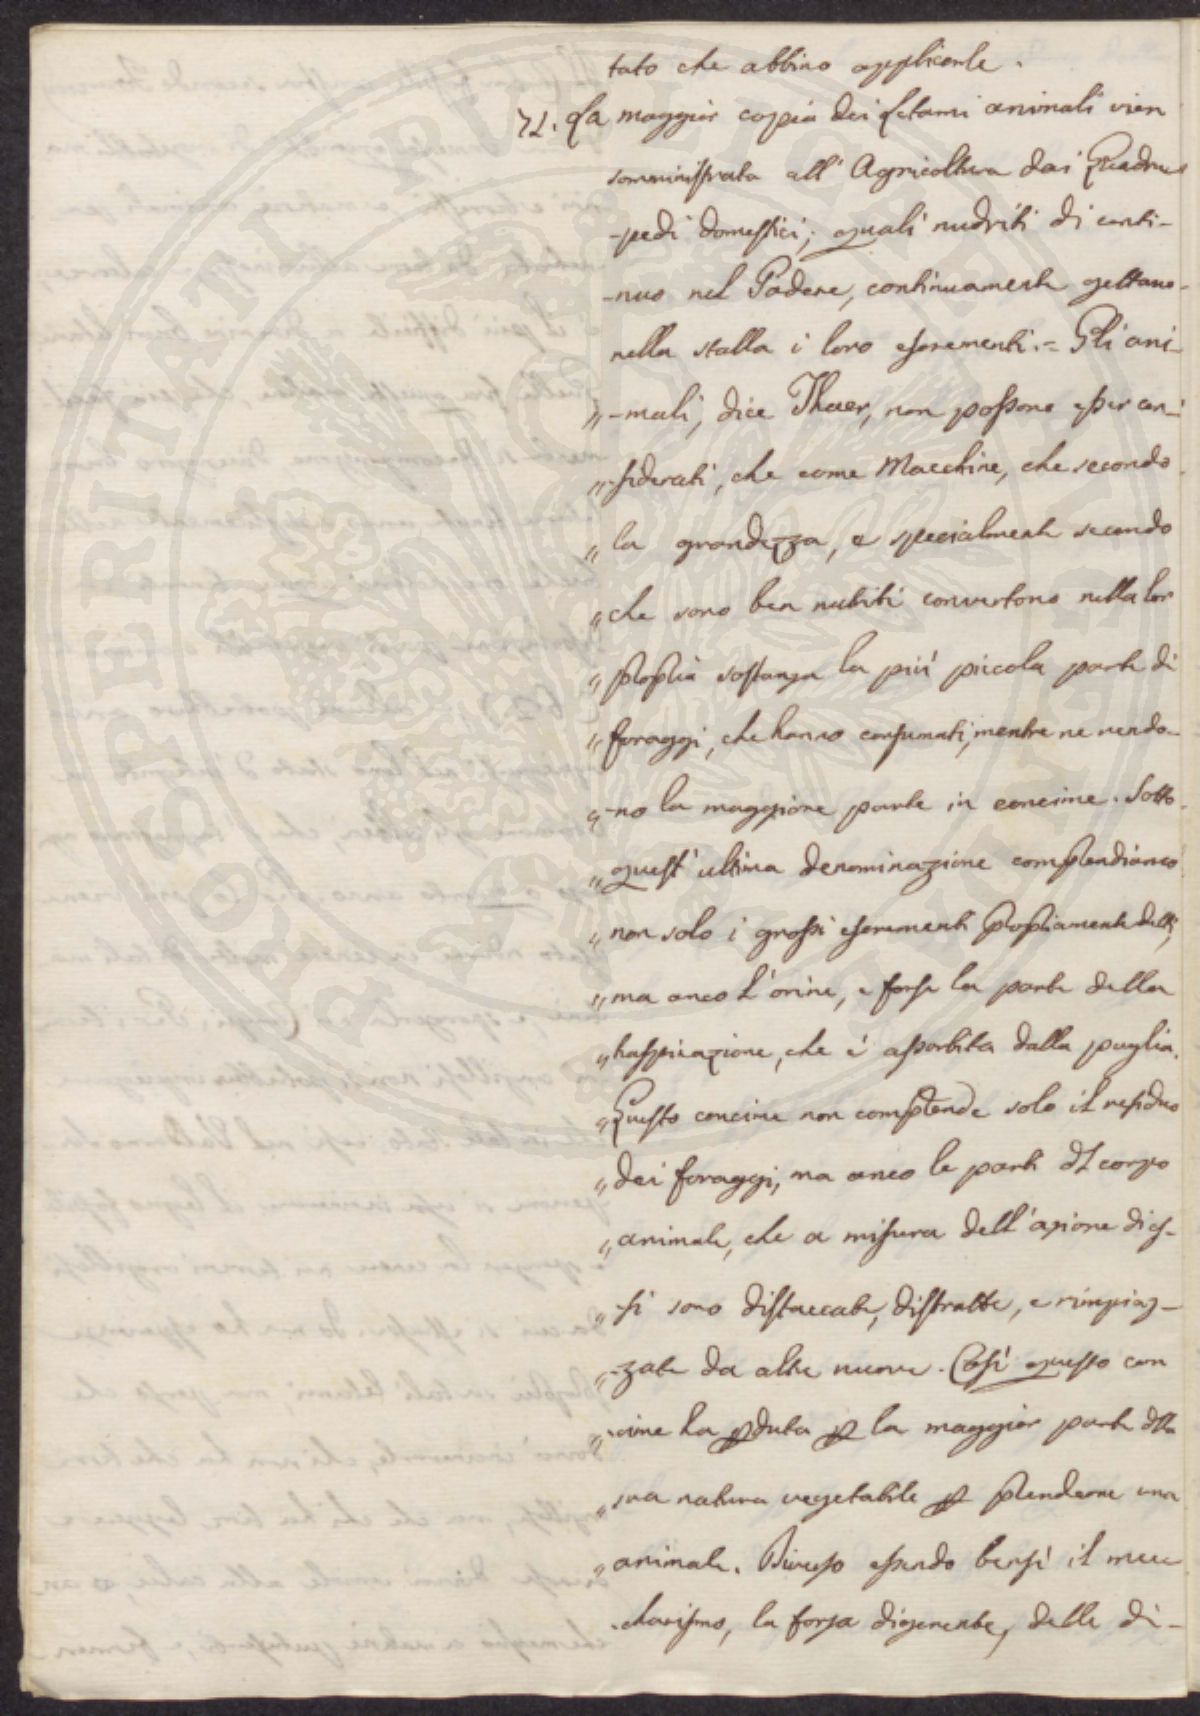 tato che abbino applicarle.
72. La maggior copia dei letami animali vien
somministrata all' Agricoltura dai Quadru
-pedi domestici; quali nudriti di conti-
-nuo nel Podere, continuamente gettano
nella stalla i loro escrementi. = Gli ani-
„ -mali, dice Thaer, non possono esser con-
„ -siderati, che come Macchine, che secondo
„ la grandezza, e specialmente secondo
„ che sono ben nutriti convertono nella lor
„ propria sostanza la più piccola parte di
„ foraggi, che hanno consumati, mentre ne rendo-
„ -no la maggiore parte in concime. Sotto
„ quest' ultima denominazione comprendiamo
„ non solo i grossi escrementi propriamente detti,
„ ma anco l'orine, e forse la parte della
„ traspirazione, che è assorbita dalla paglia.
„ Questo concime non comprende solo il residuo
„ dei foraggi, ma anco le parti dl corpo
„ animale, che a misura dell'azione di es-
„ -si sono distaccate, distratte, e rimpiaz-
„ -zate da altre nuove. Così questo con
„ -cime ha pduta p la maggior parte dlla
„ sua natura vegetabile p prenderne una
„ animale. Diverso essendo bensì il mec
-chanismo, la forza digerente, delle di-
PROSPERITATI PUBLICAE AUGENDAE